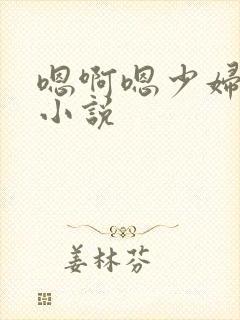 嗯啊嗯少婦
小説
姜林芬